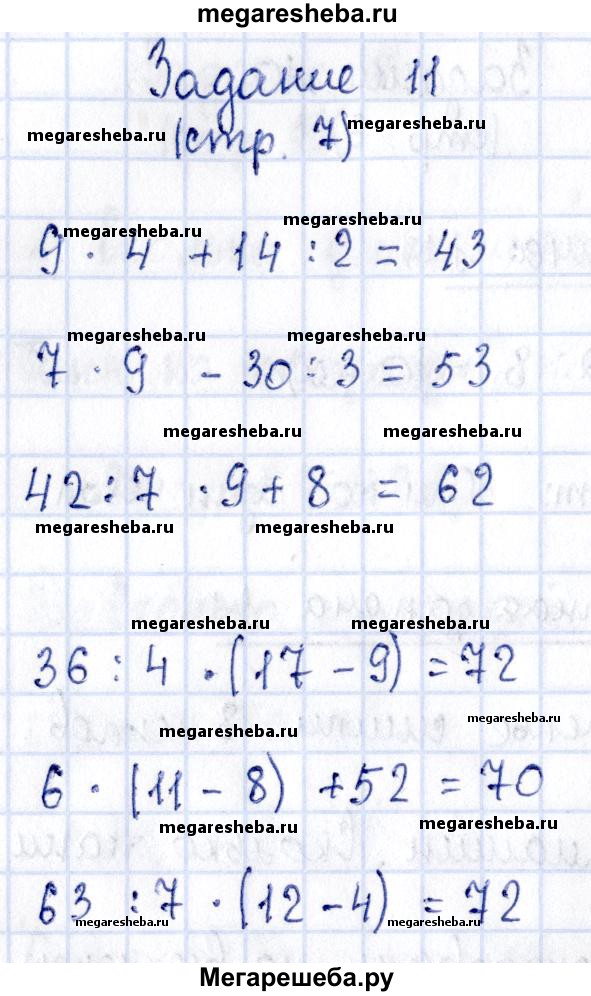 megaresheba.ru
Задание 11
megaresheba.ru megaresheba.ru
(стр. 7)
megaresheba.ru megaresheba.ru
9 · 4 + 14 : 2 = 43
megaresheba.ru megaresheba.ru
7 · 9 - 30 : 3 = 53
megaresheba.ru megaresheba.ru
42 : 7 · 9 + 8 = 62
megaresheba.ru megaresheba.ru
megaresheba.ru megaresheba.ru
36 : 4 · (17 - 9) = 72
megaresheba.ru
megaresheba.ru
6 · (11 - 8) + 52 = 70
megaresheba.ru megaresheba.ru
63 : 7 · (12 - 4) = 72
megaresheba.ru megaresheba.ru megaresheba.ru
Мегарешеба.ру